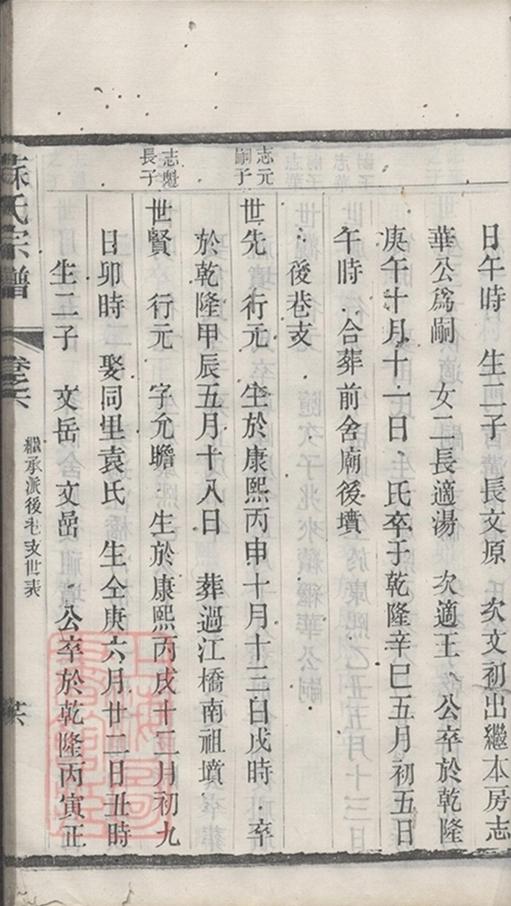 日午時　生二子　長文原　次文初出繼本房志
華公爲嗣　女二長適湯　次適王　公卒於乾隆
庚午十月十一日、氏卒于乾隆辛巳五月初五日
午時　合葬前舍廟後墳
後巷支
志元
嗣子
世先　行元　生於康熙丙申十月十三日戌時．卒
於乾隆甲辰五月十八日　葬過江橋南祖墳
志魁
長子
世賢　行元　字允瞻　生於康熙丙戌十二月初九
日卯時　娶同里袁氏　生仝庚六月廿二日丑時
生二子　文岳　文嵒　公卒於乾隆丙寅正
蘇氏宗譜
卷之六
繼承派後巷支世表